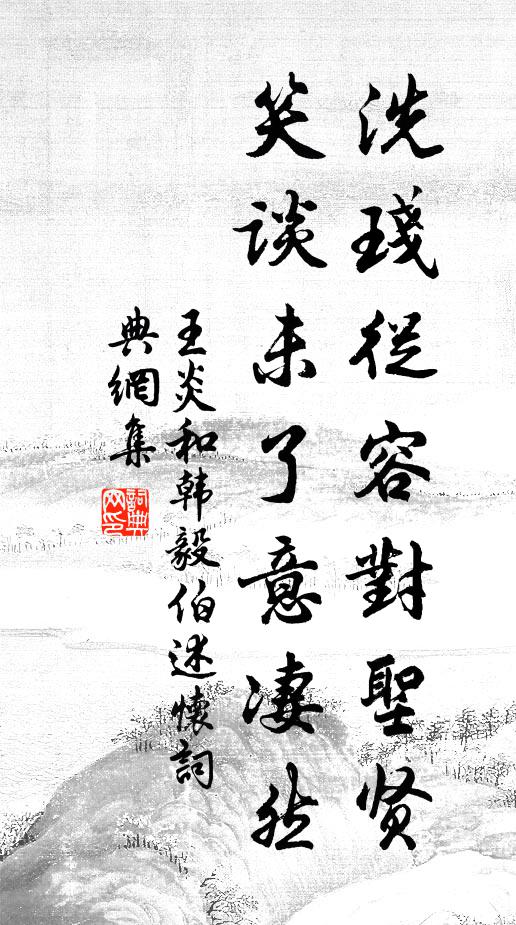 洗琖從容對聖贤
笑談未了意凄然
王炎和韩毅伯述懷詞
典網集
詞典网印